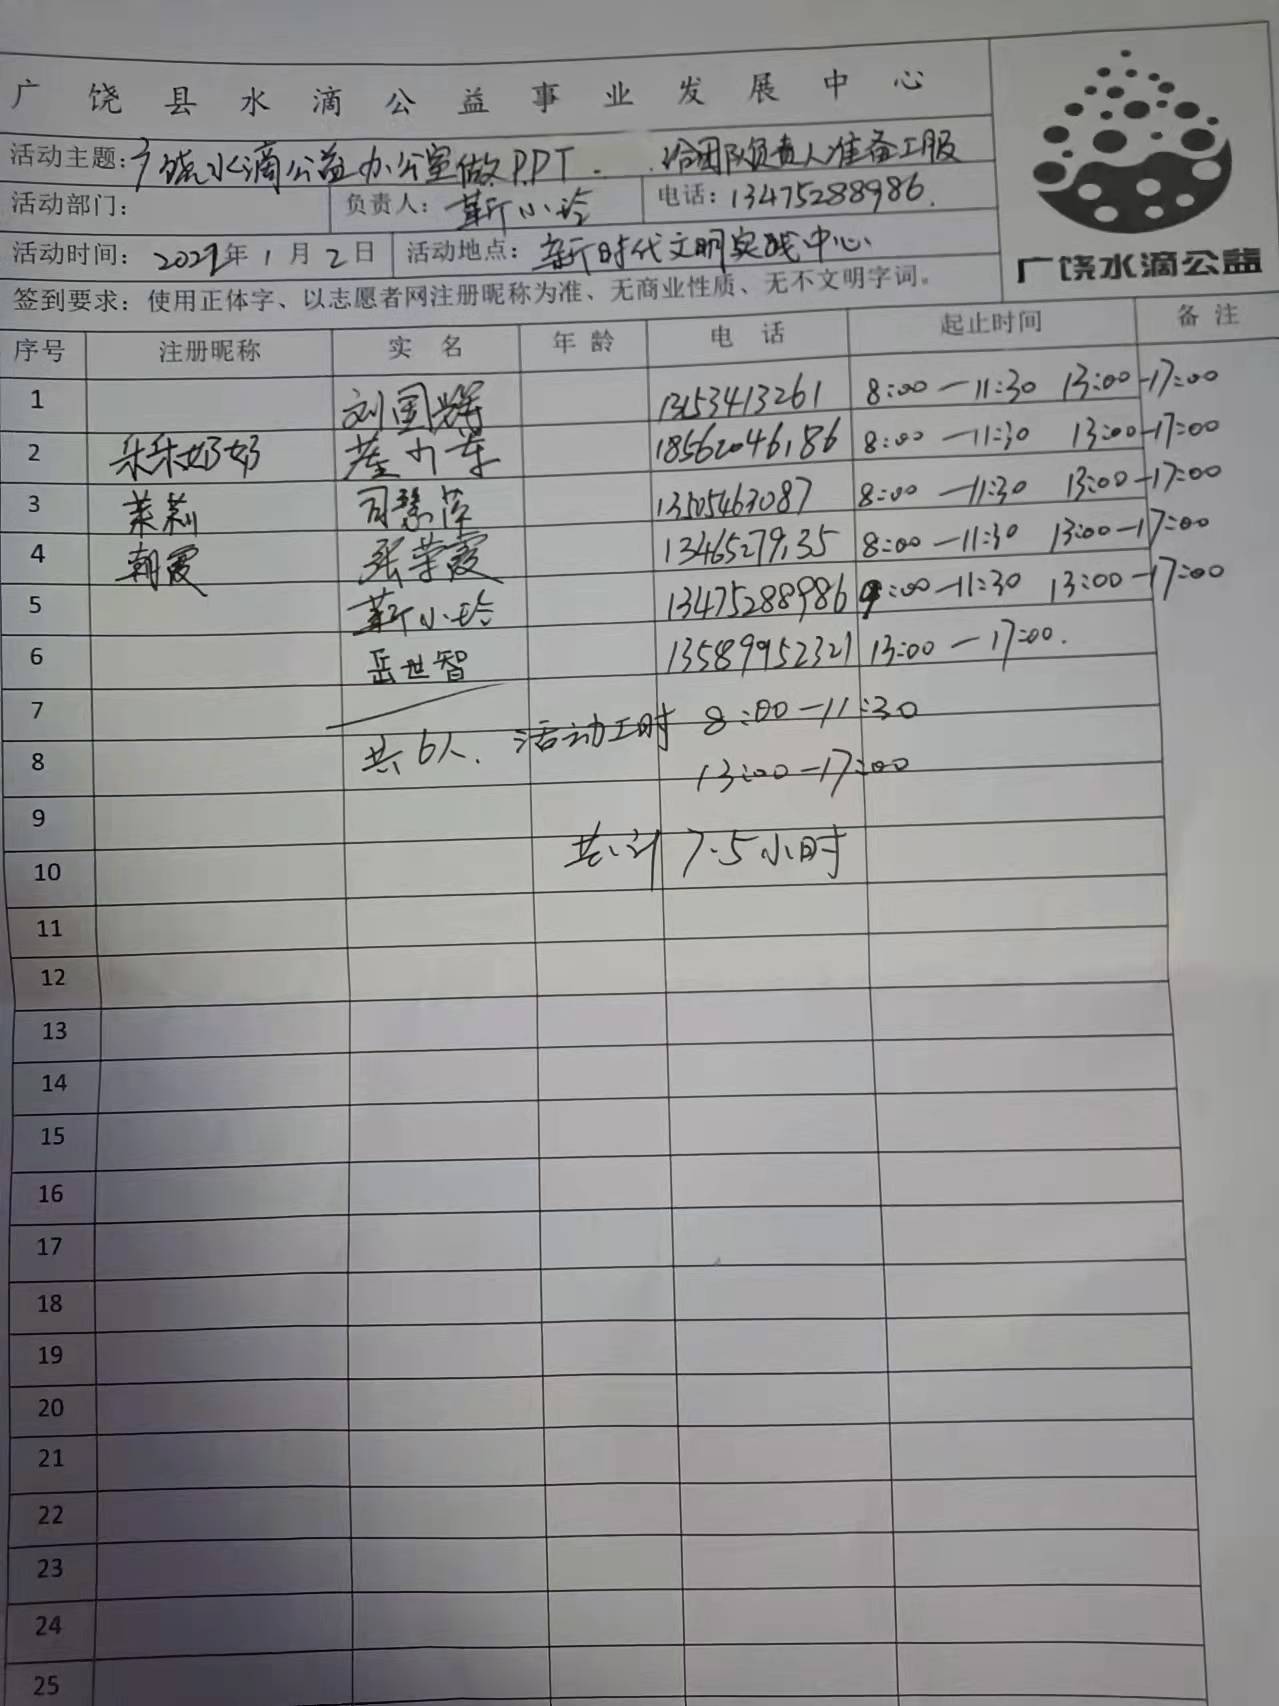 广饶县水滴公益事业发展中心
活动主题：广饶水滴公益办公室做PPT. 给团队负责人准备工服
活动部门： 负责人：靳小玲 电话：13475288986.
活动时间：2022年1月2日 活动地点：新时代文明实践中心
广饶水滴公益
签到要求：使用正体字、以志愿者网注册昵称为准、无商业性质、无不文明字词。
序号 注册昵称 实名 年龄 电话 起止时间 备注
1 刘国辉 13153413261 8:00—11:30 13:00—17:00
2 乐乐奶奶 18562046186 8:00—11:30 13:00—17:00
3 茉莉 司慧萍 13505463087 8:00—11:30 13:00—17:00
4 朝霞 张荣霞 13465279135 8:00—11:30 13:00—17:00
5 靳小玲 13475288986 :00—11:30 13:00—17:00
6 岳世智 13589952321 13:00—17:00.
7
共6人. 活动工时 8:00—11:30
8
13:00—17:00
9
共计 7.5小时
10
11
12
13
14
15
16
17
18
19
20
21
22
23
24
25